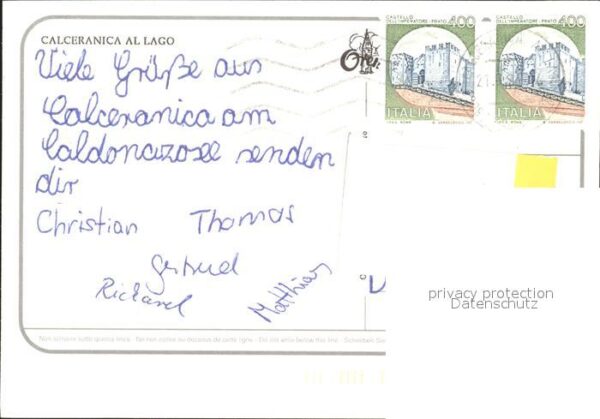 CALCERANICA AL LAGO
Viele Grüße aus
Calceranica am
Caldonazosee senden
dir
Christian Thomas
Gertrud
Richard
Matthias
CASTELLO DELL'IMPERATORE - PRATO 400
ITALIA
CASTELLO DELL'IMPERATORE - PRATO 400
ITALIA
privacy protection
Datenschutz
Non scrivere sotto questa linea - Do not write below this line - Schreiben Sie